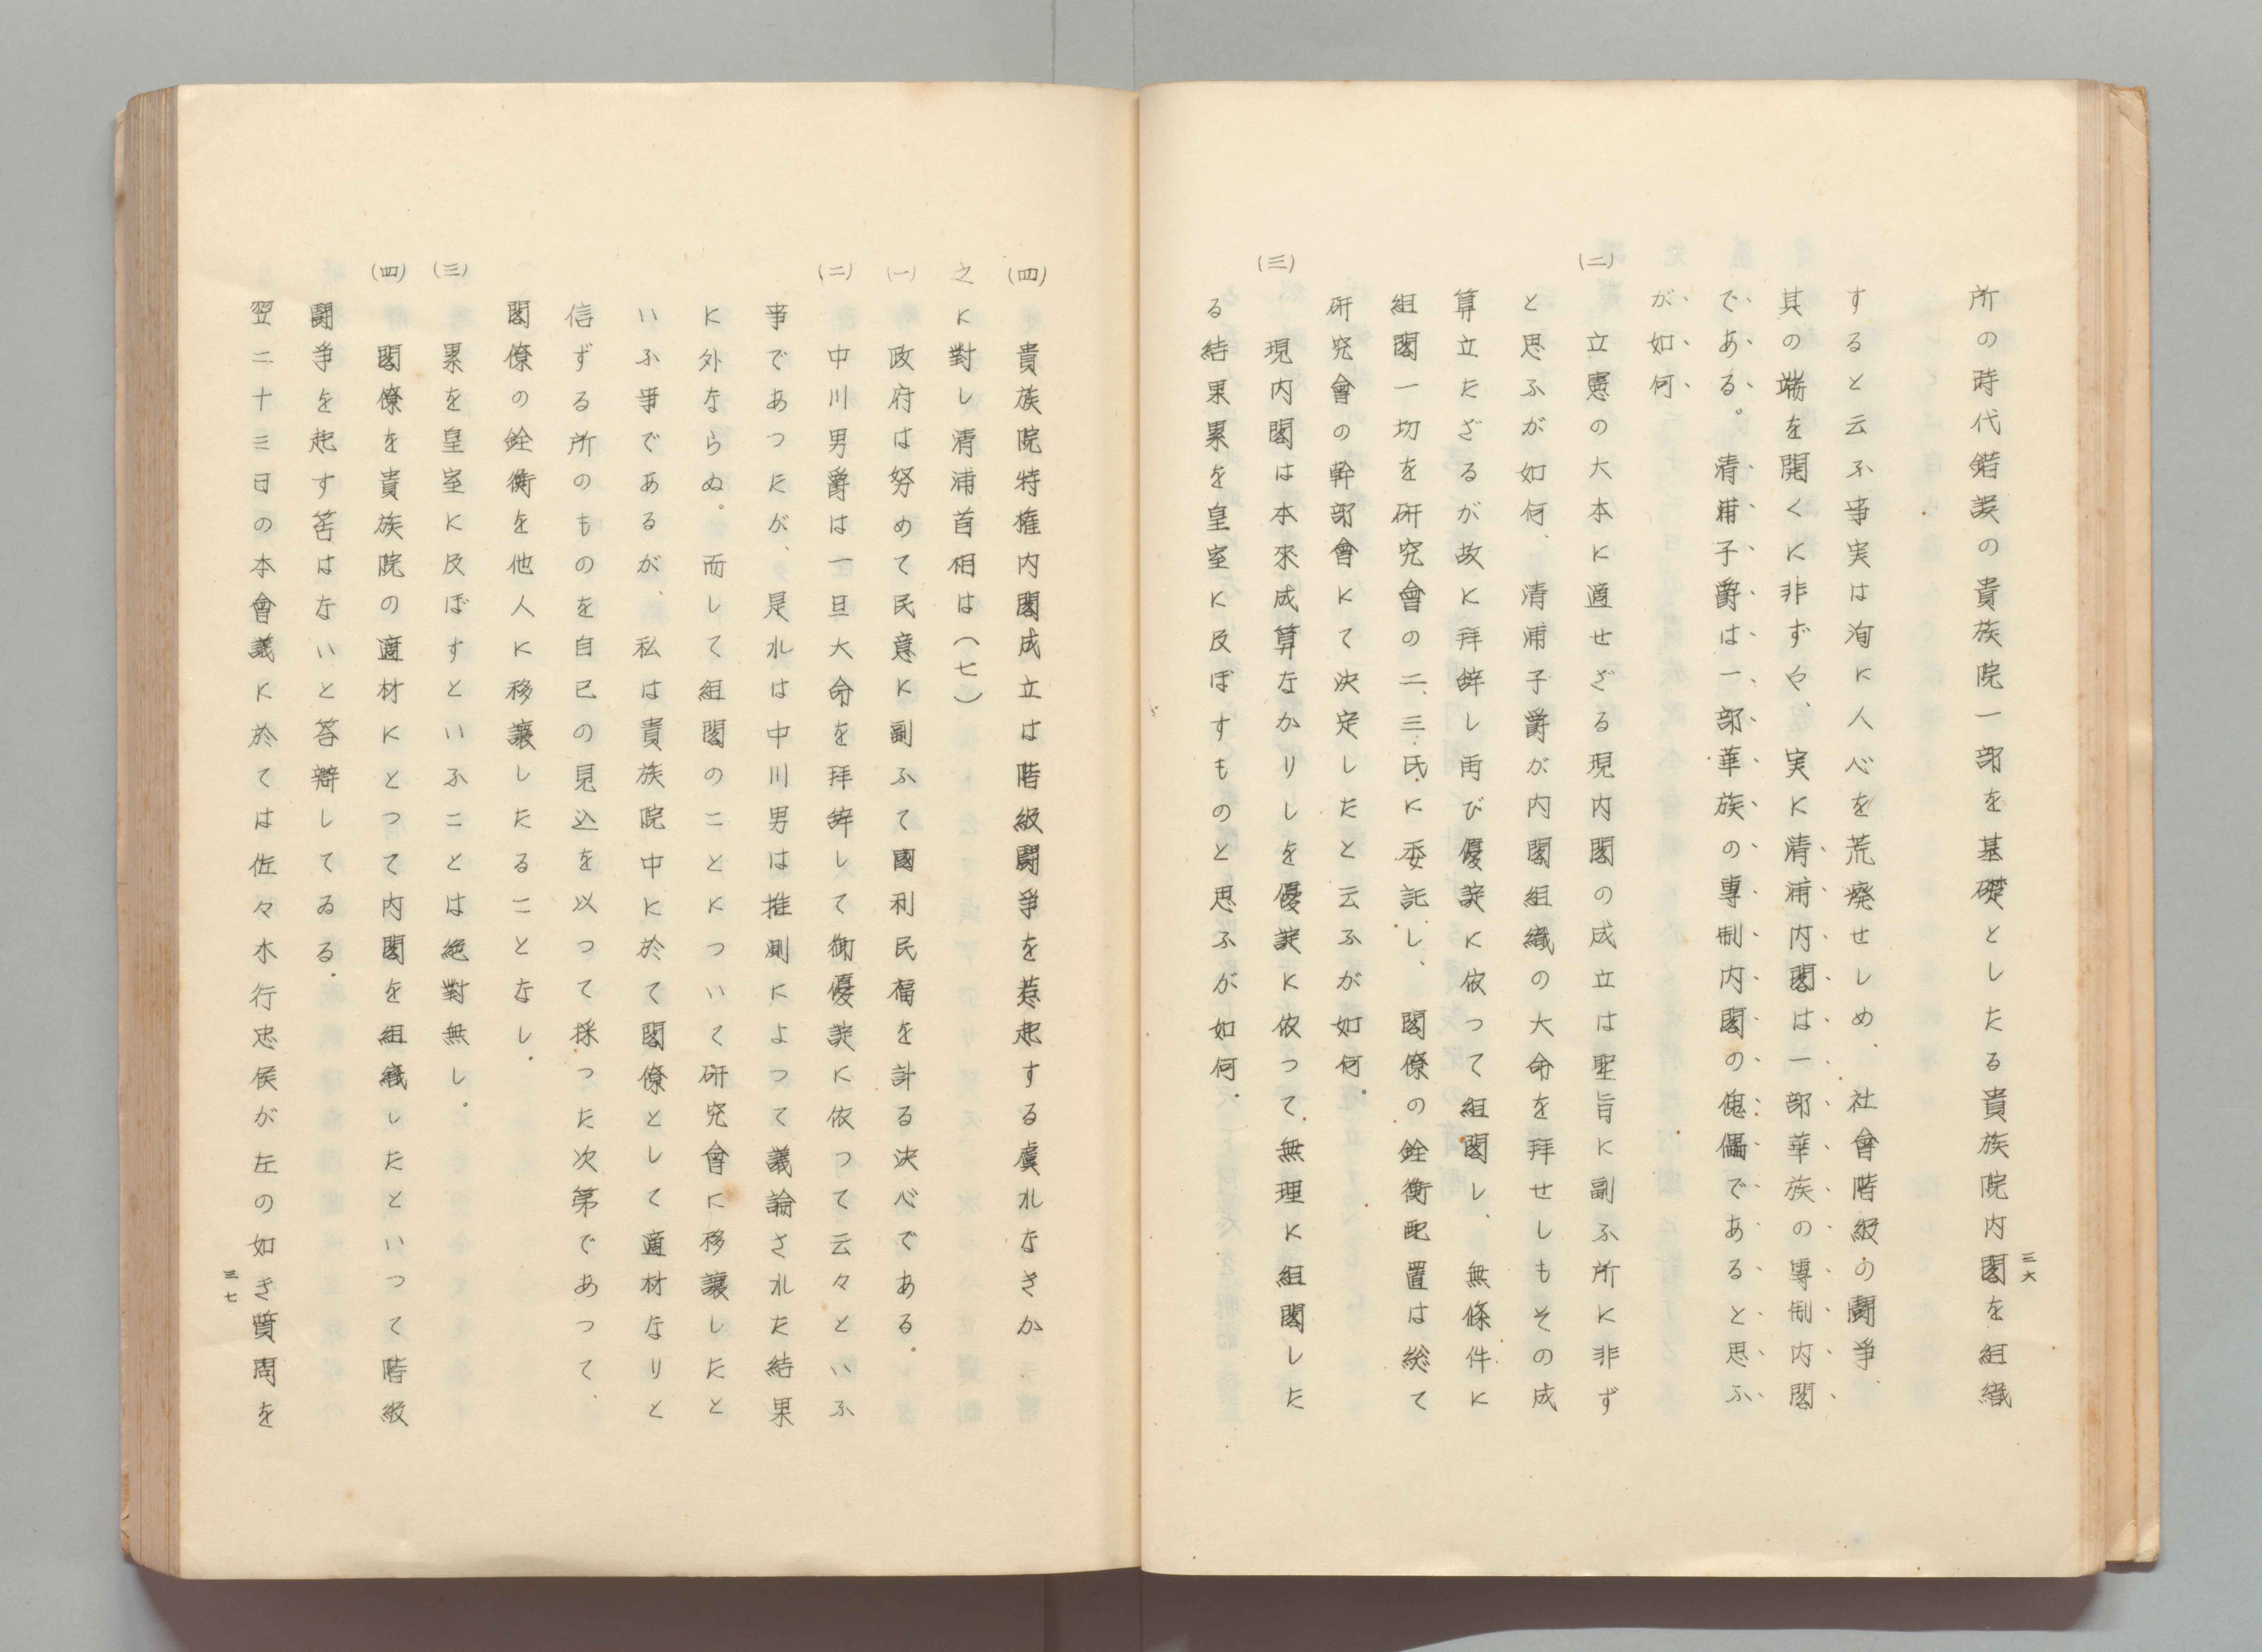 所の時代錯誤の貴族院一部を基礎としたる貴族院内閣を組織
すると云ふ事実は洵に人心を荒廃せしめ、社會階級の闘爭、
其の端を開くに非ずや、実に清浦内閣は一部華族の專制内閣
である。清浦子爵は一部華族の專制内閣の傀儡であると思ふ
が如何
(二)立憲の大本に適せざる現内閣の成立は聖旨に副ふ所に非ず
と思ふが如何、清浦子爵が内閣組織の大命を拜せしもその成
算立たざるが故に拜辞し再び優諚に依つて組閣し、無條件に
組閣一切を研究會の二、三氏に委託し、閣僚の銓衡配置は総て
研究會の幹部會にて決定したと云ふが如何。
(三)現内閣は本來成算なかりしを優諚に依つて無理に組閣した
る結果累を皇室に及ぼすものと思ふが如何.
三六
(四)貴族院特権内閣成立は階級闘爭を惹起する虞れなきか
之に對し清浦首相は(七)
(一)政府は努めて民意に副ふて國利民福を計る決心である。
(二)中川男爵は一旦大命を拜辞して御優諚に依つて云々といふ
事であつたが、是れは中川男は推測によつて議論された結果
に外ならぬ。而して組閣のことについて研究會に移譲したと
いふ事であるが、私は貴族院中に於て閣僚として適材なりと
信ずる所のものを自己の見込を以つて採つた次第であつて、
閣僚の銓衡を他人に移譲したることなし.
(三)累を皇室に及ぼすといふことは絶對無し。
(四)閣僚を貴族院の適材にとつて内閣を組織したといつて階級
闘爭を起す筈はないと答辯してゐる.
翌二十三日の本會議に於ては佐々木行忠侯が左の如き質問を
三七